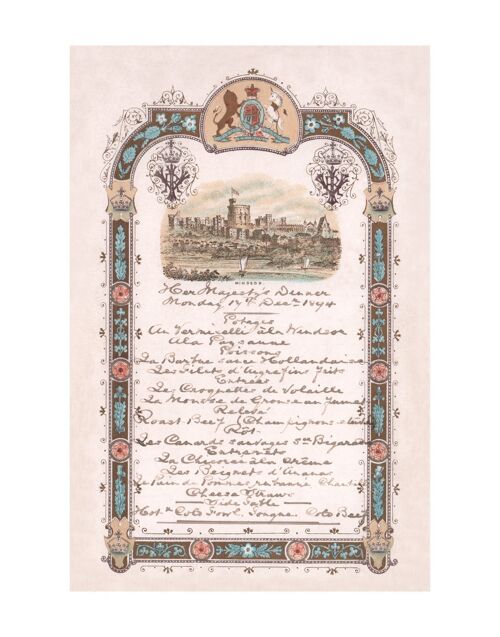 WINDSOR
Her Majesty's Dinner
Monday 17th Decr 1894
Potages
Au Vermicelle à la Windsor
A la Paysanne
Poissons
La Barbue sauce Hollandaise
Les Filets d'Aigrefin frits
Entrées
Les Croquettes de Volaille
La Mousse de Grouse au fumet
Relevé
Roast Beef Champignons
Rôt
Les Canards sauvages sce Bigarade
Entremêts
La à la Crême
Les Beignets d'Ananas
Le Pain de Pommes rubanné
Cheese Straws
Side Table
Hot & Cold Fowl. Tongue. Cold Beef